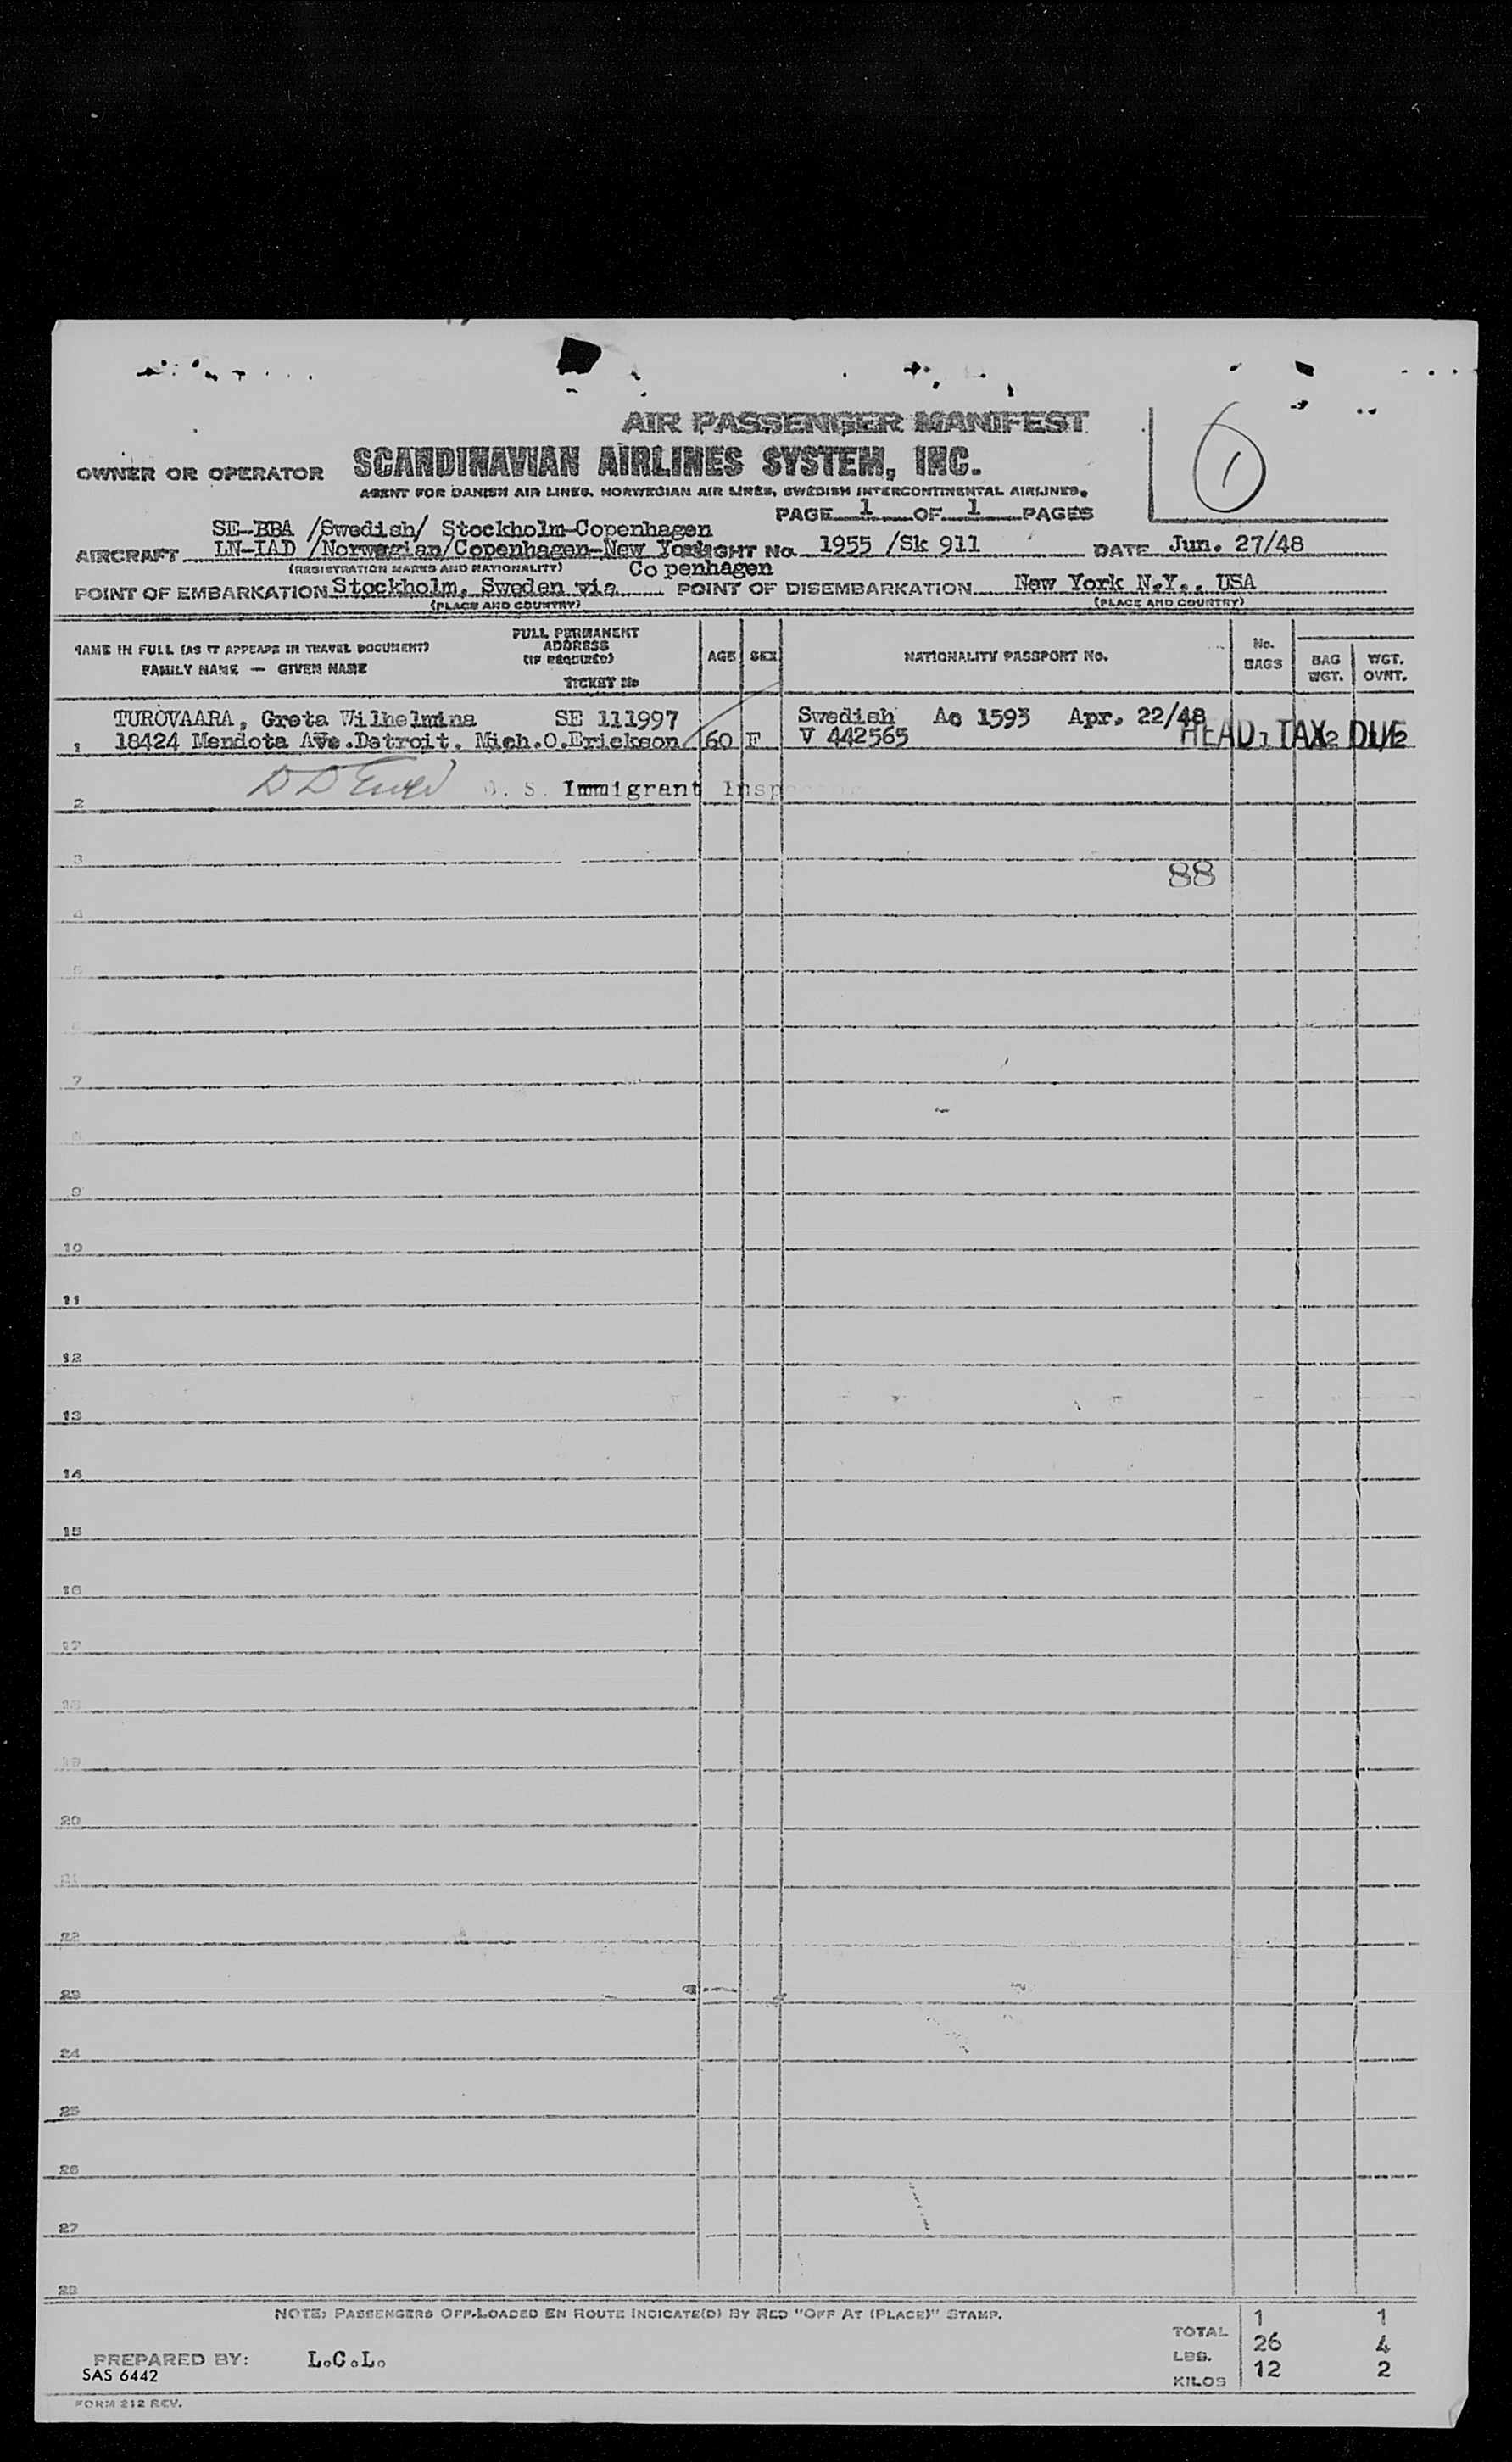 AIR PASSENGER MANIFEST
1
OWNER OR OPERATOR SCANDINAVIAN AIRLINES SYSTEM, INC.
AGENT FOR DANISH AIR LINES, NORWEGIAN AIR LINES, SWEDISH INTERCONTINENTAL AIRLINES.
PAGE 1 OF 1 PAGES
SE-BBA /Swedish/ Stockholm-Copenhagen
AIRCRAFT LN-IAD /Norwegian/Copenhagen-New York FLIGHT No. 1955 /Sk 911 DATE Jun. 27/48
(REGISTRATION MARKS AND NATIONALITY) Copenhagen
POINT OF EMBARKATION Stockholm, Sweden via POINT OF DISEMBARKATION New York N.Y., USA
(PLACE AND COUNTRY) (PLACE AND COUNTRY)
NAME IN FULL (AS IT APPEARS IN TRAVEL DOCUMENT)
FAMILY NAME — GIVEN NAME
FULL PERMANENT
ADDRESS
(IF REQUIRED)
TICKET No
AGE SEX NATIONALITY PASSPORT No.
No.
BAGS
BAG
WGT.
WGT.
OVNT.
TUROVAARA, Greta Wilhelmina SE 111997 Swedish Ac 1593 Apr. 22/48
1 18424 Mendota AVe.Detroit, Mich.O.Erickson 60 F V 442565 HEAD TAX DUE
U. S. Immigrant Inspector
2
3
88
4
5
6
7
8
9
10
11
12
13
14
15
16
17
18
19
20
21
22
23
24
25
26
27
28
NOTE: PASSENGERS OFF-LOADED EN ROUTE INDICATE(D) BY RED "OFF AT (PLACE)" STAMP.
TOTAL 1 1
LBS. 26 4
KILOS 12 2
PREPARED BY: L.C.L.
SAS 6442
FORM 212 REV.